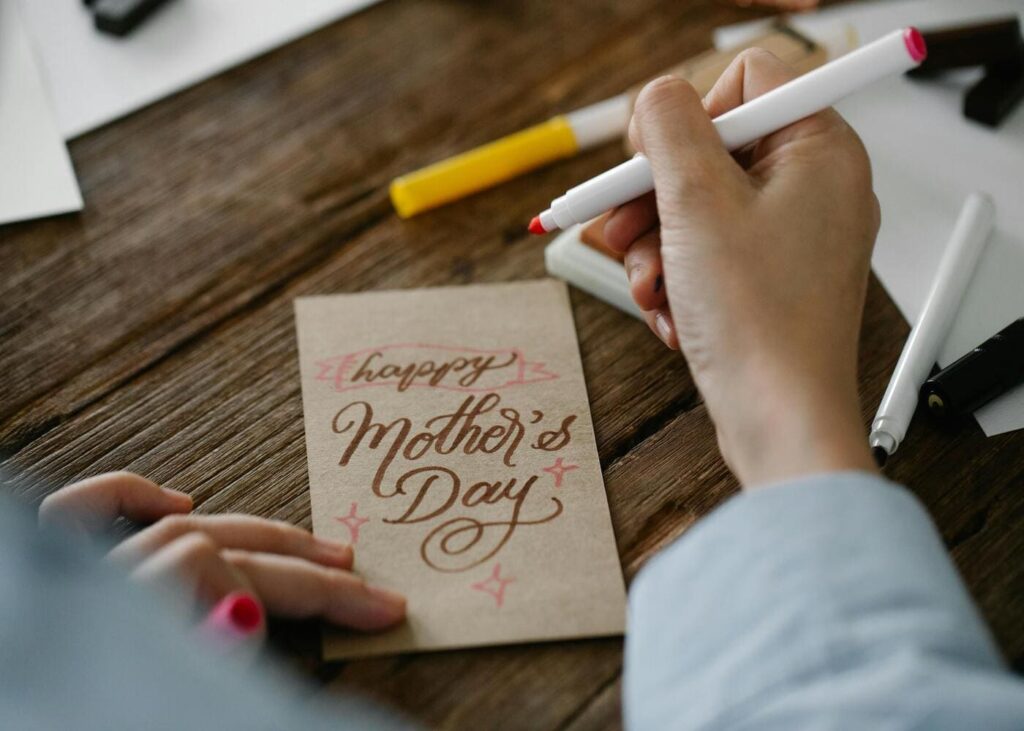 happy
Mother's
Day